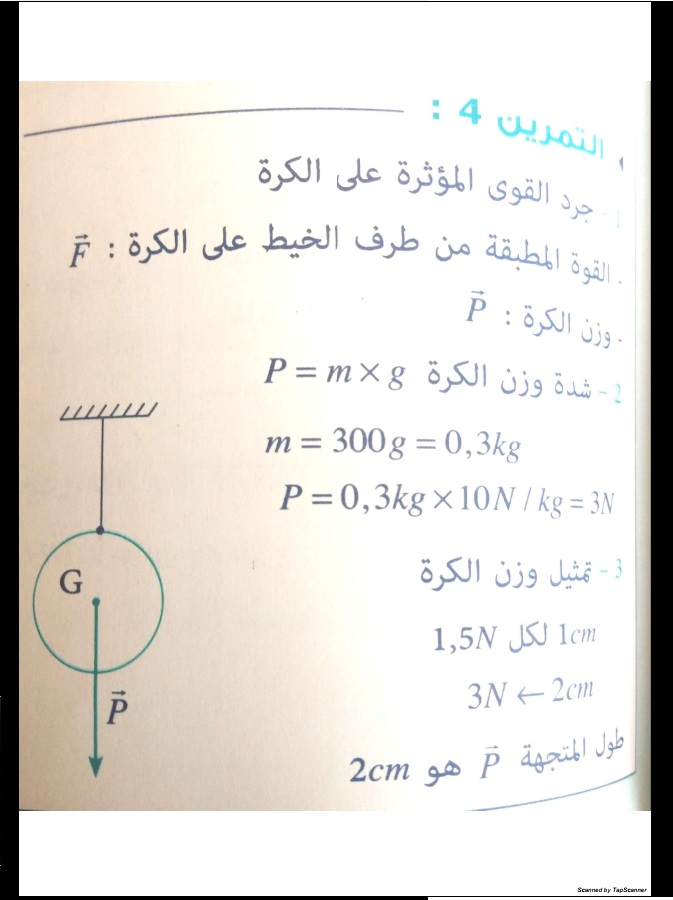 التمرين 4 :
1 - جرد القوى المؤثرة على الكرة
- القوة المطبقة من طرف الخيط على الكرة : F⃗
- وزن الكرة : P⃗
2 - شدة وزن الكرة P = m × g
m = 300g = 0,3kg
P = 0,3kg × 10N / kg = 3N
3 - تمثيل وزن الكرة
1cm لكل 1,5N
3N ← 2cm
طول المتجهة P⃗ هو 2cm
G
P⃗
Scanned by TapScanner